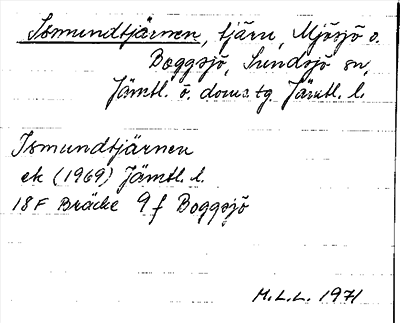 Ismundtjärnen, tjärn, Mjösjö o.
Boggsjö, Sundsjö sn,
Jämtl. ö. doms.tg. Jämtl. l.
Ismundtjärnen
ek (1969) Jämtl. l.
18F Bräcke 9f Boggsjö
M.L.L. 1971